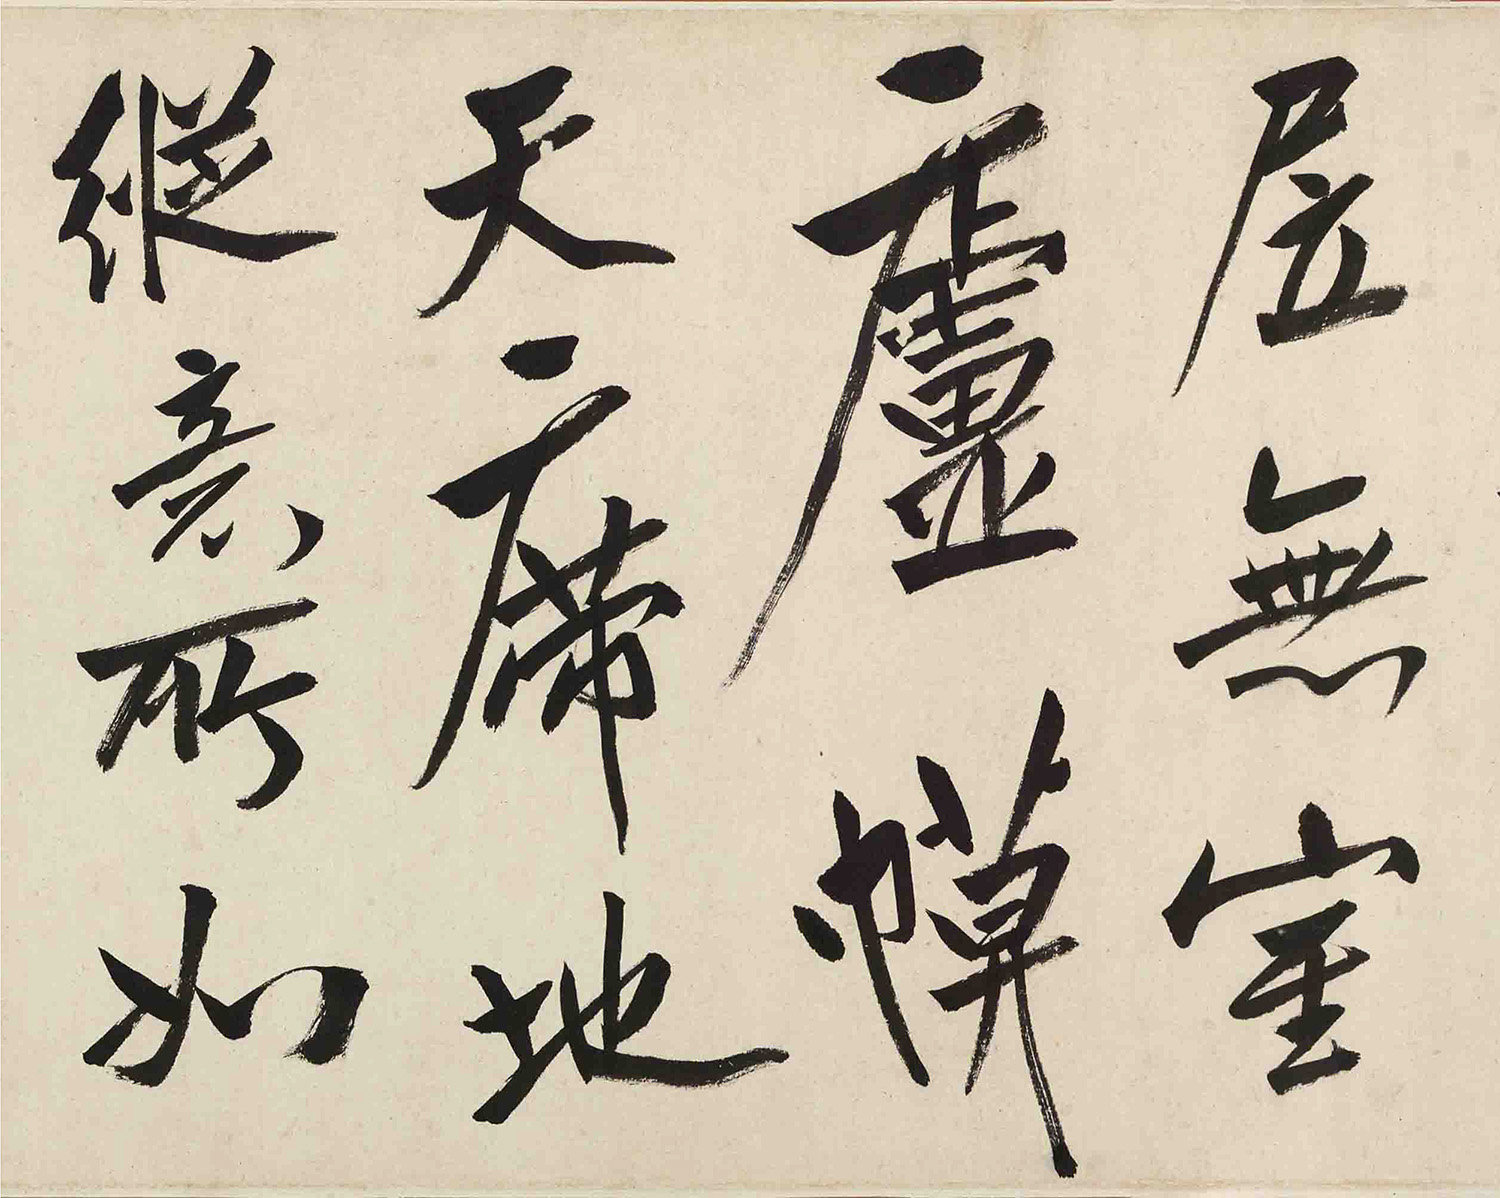 居無室
廬幙
天席地
縱意所如